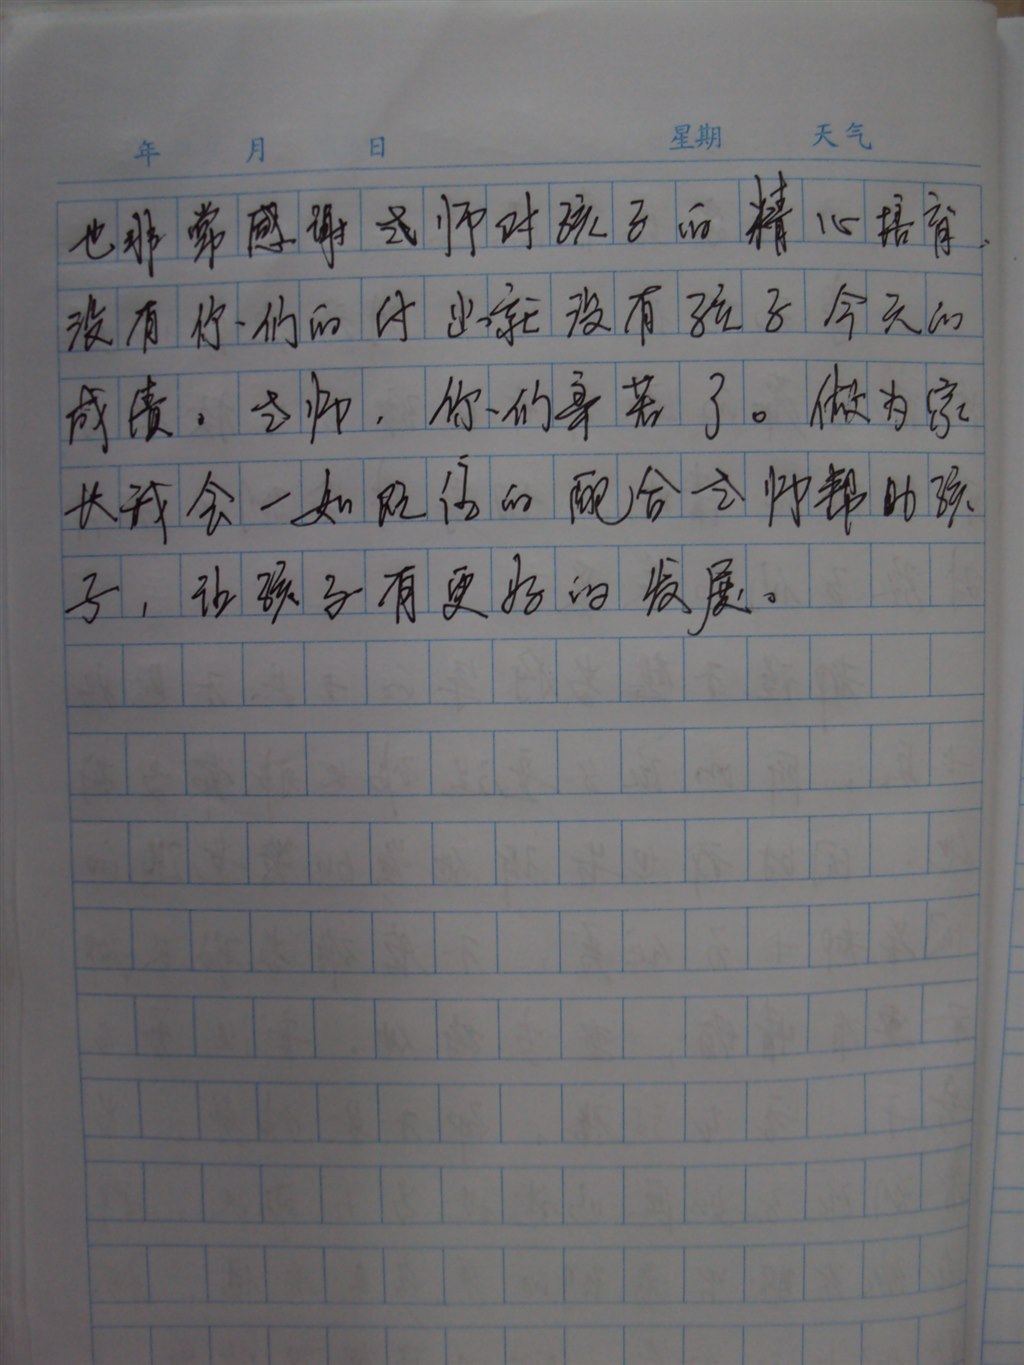 年 月 日 星期 天气
也非常感谢老师对孩子的精心培育.
没有你们的付出就没有孩子今天的
成绩。老师,你们辛苦了。做为家
长我会一如既往的配合老师帮助孩
子,让孩子有更好的发展。